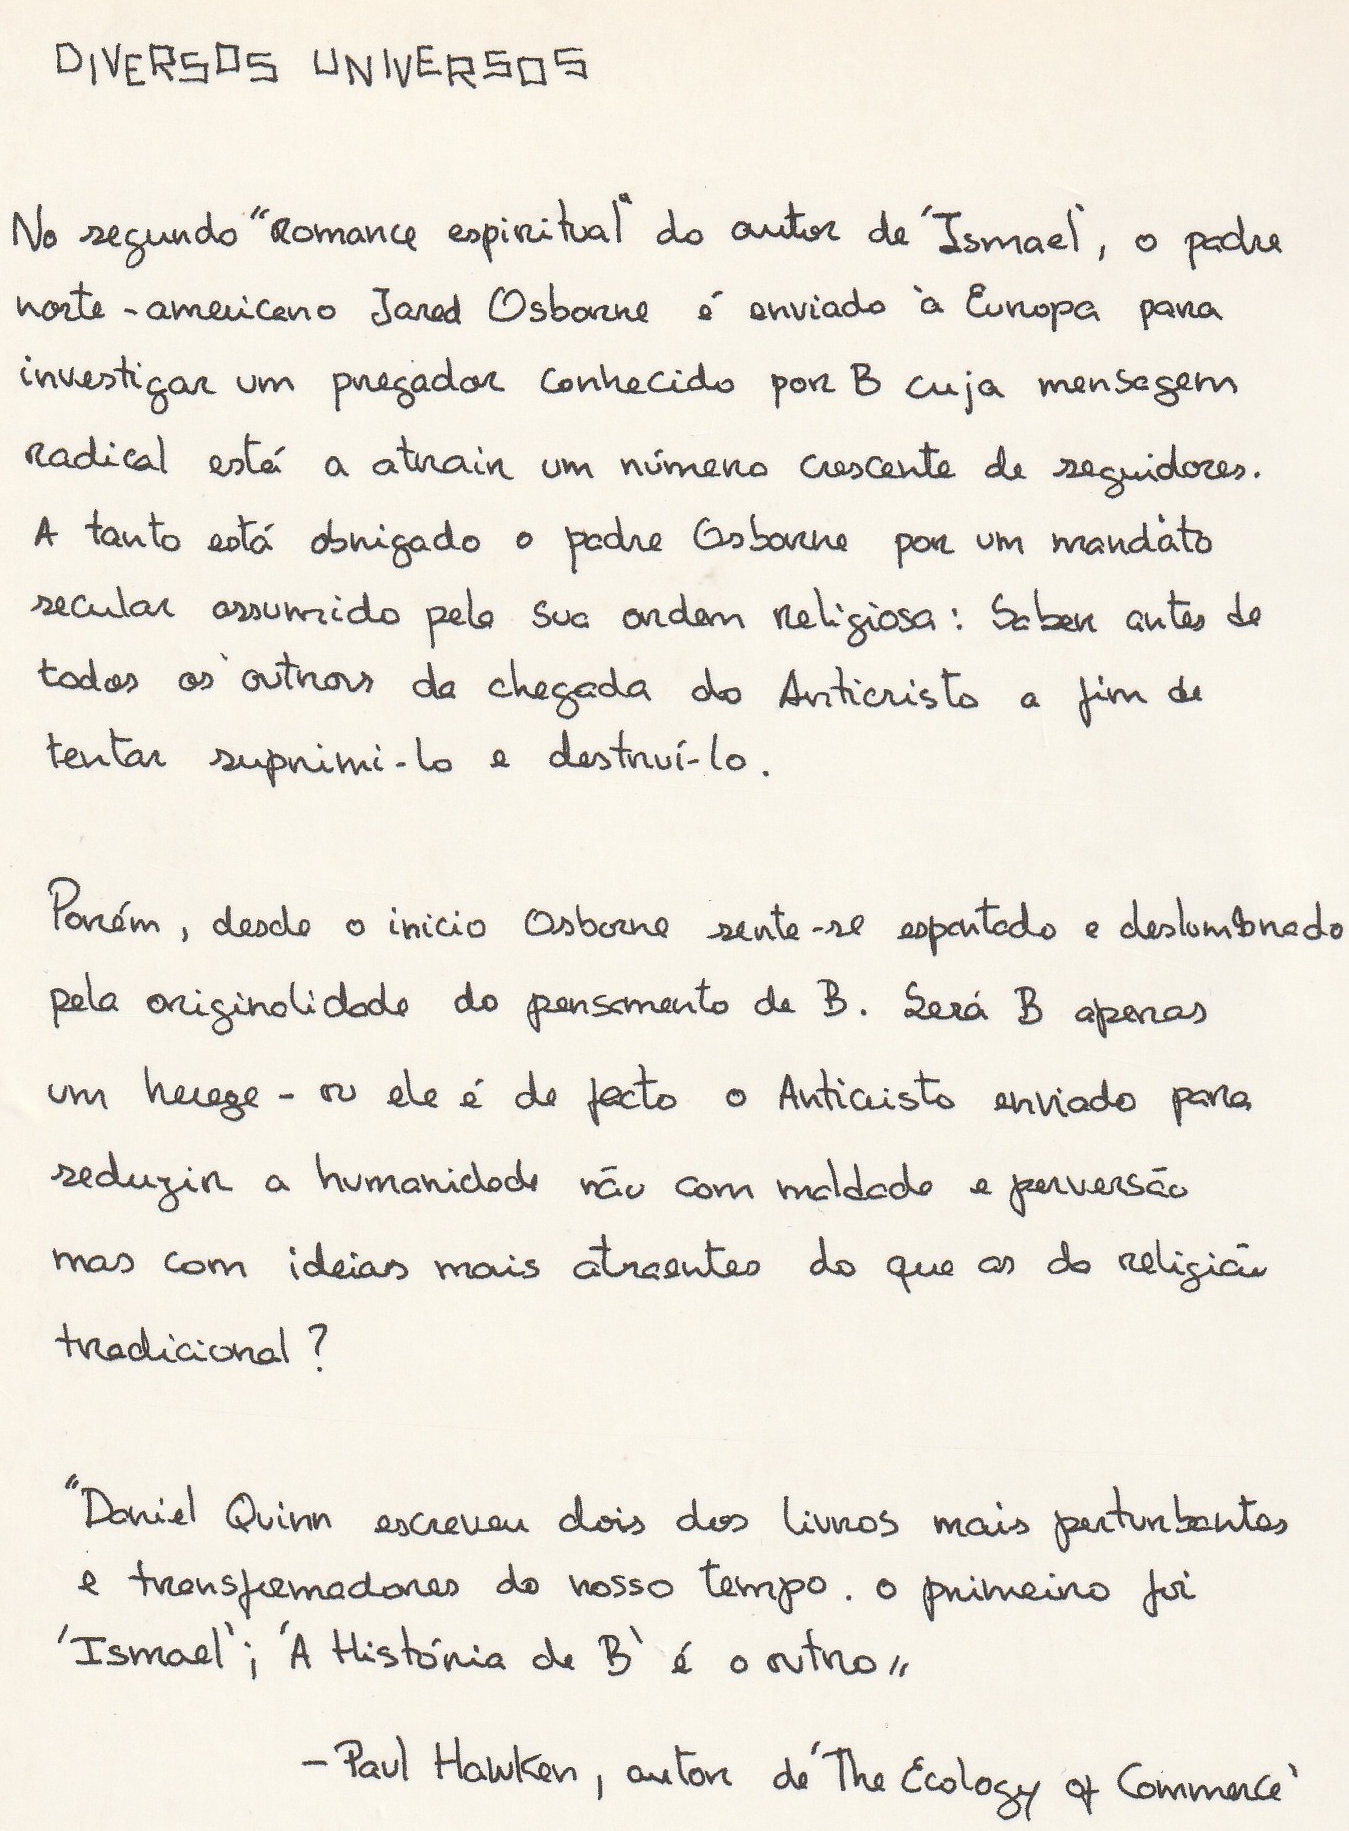 DIVERSOS UNIVERSOS
No segundo "Romance espiritual" do autor de 'Ismael', o padre
norte-americano Jared Osborne é enviado à Europa para
investigar um pregador conhecido por B cuja mensagem
radical está a atrair um número crescente de seguidores.
A tanto está obrigado o padre Osborne por um mandato
secular assumido pela sua ordem religiosa: Saber antes de
todos os outros da chegada do Anticristo a fim de
tentar suprimi-lo e destruí-lo.
Porém, desde o inicio Osborne sente-se espantado e deslumbrado
pela originalidade do pensamento de B. Será B apenas
um herege - ou ele é de facto o Anticristo enviado para
seduzir a humanidade não com maldade e perversão
mas com ideias mais atraentes do que as da religião
tradicional?
"Daniel Quinn escreveu dois dos livros mais perturbantes
e transformadores do nosso tempo. o primeiro foi
'Ismael'; 'A História de B' é o outro"
- Paul Hawken, autor de 'The Ecology of Commerce'